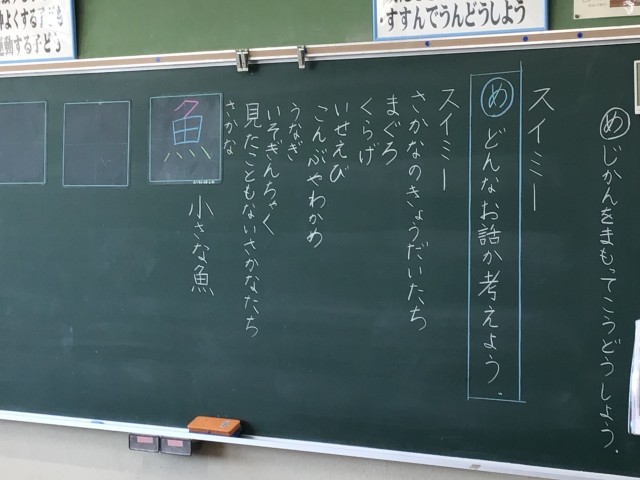 すすんでうんどうしよう
運動する子ども
め じかんをまもってこうどうしよう。
スイミー
め どんなお話か考えよう。
スイミー
さかなのきょうだいたち
まぐろ
くらげ
いせえび
こんぶやわかめ
うなぎ
いそぎんちゃく
見たこともないさかなたち
さかな
魚
小さな魚